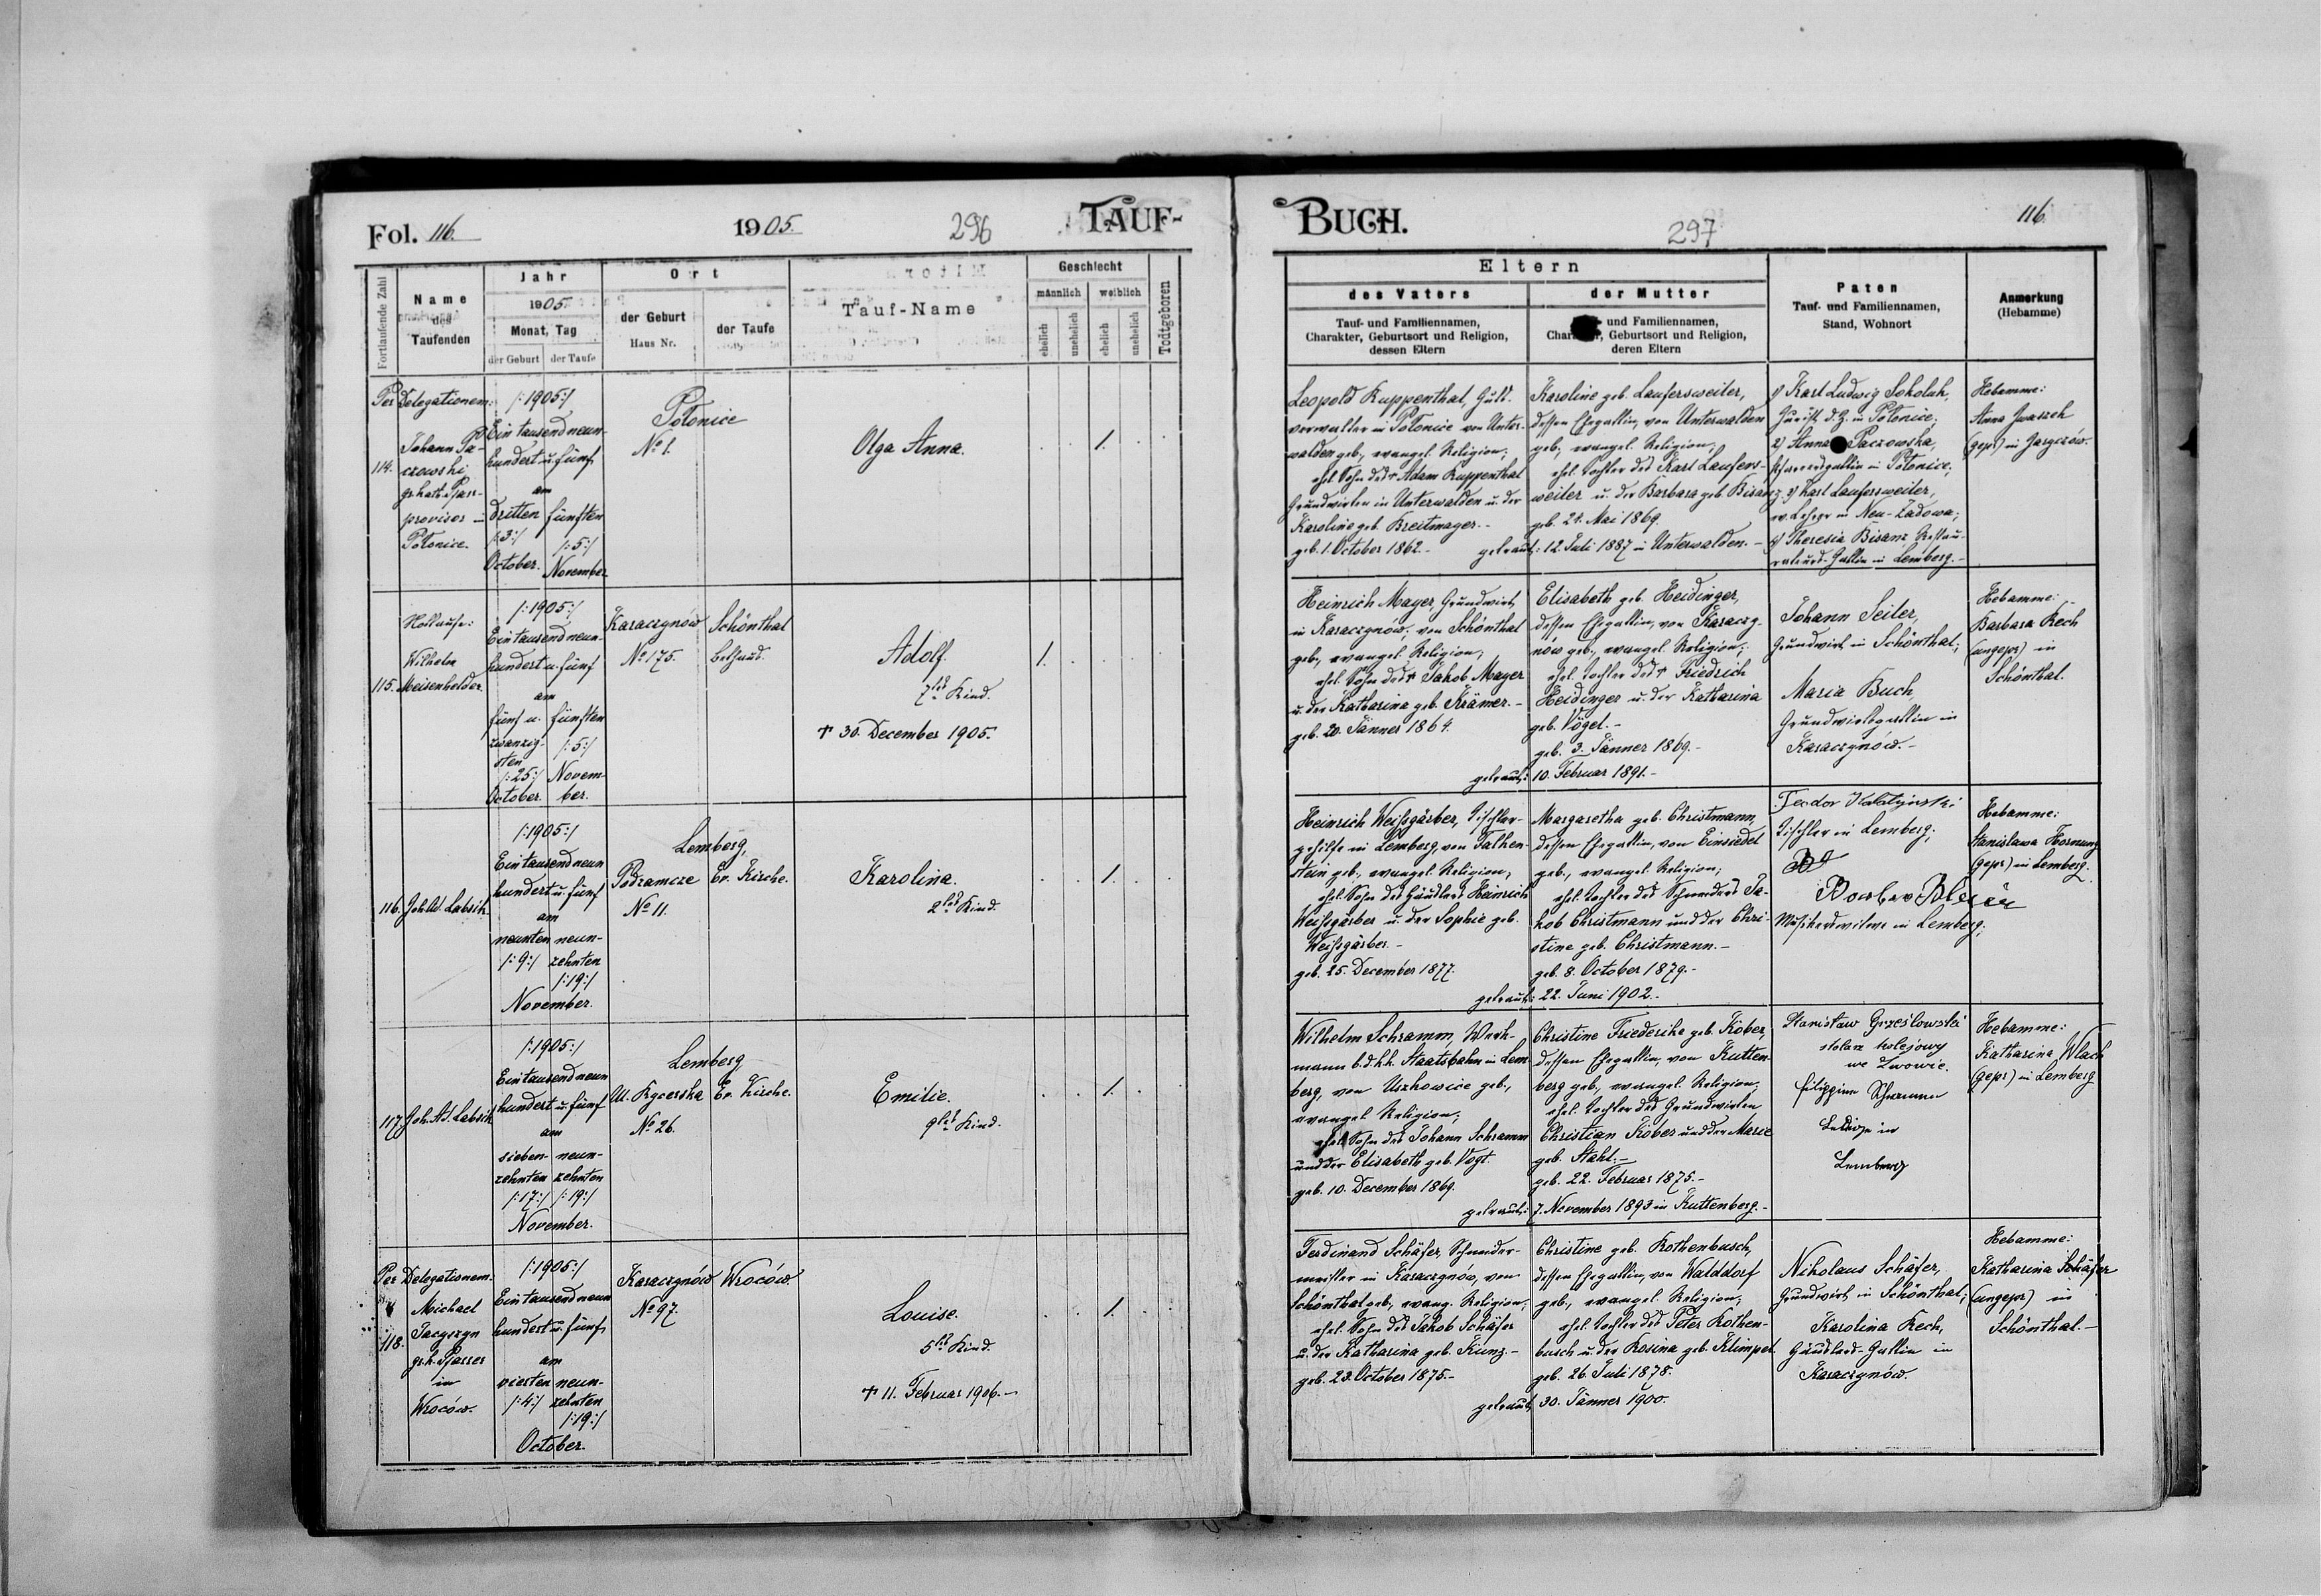 Fol. 116.
1905.
296
TAUF-
Fortlaufende Zahl
Name des Taufenden
Jahr
1905.
Monat, Tag
der Geburt
der Taufe
Ort
der Geburt
Haus Nr.
der Taufe
Tauf-Name
Geschlecht
männlich
weiblich
ehelich
unehelich
ehelich
unehelich
Todtgeboren
Per Delegationem:
114.
Johann Pa-
czowski
gr. kath. Pfarr-
provisor in
Polonice.
/:1905:/
Ein tausend neun-
hundert u. fünf
am
dritten
/:3:/
October.
fünften
/:5:/
November
Polonice
No 1.
Olga Anna.
1.
115.
Wilhelm
Meisenhelder.
/:1905:/
Ein tausend neun-
hundert u. fünf
am
fünf u.
zwanzig-
sten
/:25:/
October.
fünften
/:5:/
Novem-
ber.
Karaczynów
No 175.
Schönthal
Bethaus.
Adolf.
7tes Kind.
† 30. December 1905.
1.
116.
Joh. Ad. Labsik
/:1905:/
Ein tausend neun
hundert u. fünf
am
neunten
/:9:/
neun-
zehnten
/:19:/
November.
Lemberg,
Podzamcze
No 11.
Ev. Kirche.
Karolina.
2tes Kind.
1.
117.
Joh. Ad. Labsik
/:1905:/
Ein tausend neun
hundert u. fünf
am
sieben-
zehnten
/:17:/
neun-
zehnten
/:19:/
November.
Lemberg
Ul. Kgcerska
No 26.
Ev. Kirche.
Emilie.
9tes Kind.
1.
Per Delegationem.
118.
Michael
Jacyszyn
gr. k. Pfarrer
in
Wroców.
/:1905:/
Ein tausend neun
hundert u. fünf
am
vierten
/:4:/
neun-
zehnten
/:19:/
October.
Karaczynów
No 97.
Wroców.
Louise.
5tes Kind.
† 11. Februar 1906.-
1.
BUCH.
297
116
Eltern
des Vaters
Tauf- und Familiennamen,
Charakter, Geburtsort und Religion,
dessen Eltern
der Mutter
- und Familiennamen,
Geburtsort und Religion,
deren Eltern
Paten
Tauf- und Familiennamen,
Stand, Wohnort
Anmerkung
(Hebamme)
Leopold Kuppenthal, Guts-
verwalter in Polonice von Unter-
walden geb., evangel. Religion;
ehel. Sohn des † Adam Kuppenthal
Grundwirten in Unterwalden u. der
Karoline geb. Kreitmayer.-
geb. 1. October 1862.-
Karoline geb. Laufersweiler,
dessen Ehegattin, von Unterwalden
geb., evangel. Religion;
ehel. Tochter des Karl Laufers-
weiler u. der Barbara geb. Bisanz.
geb. 21. Mai 1869.
getraut: 12. Juli 1887 in Unterwalden.-
1) Karl Ludwig Sokoluk,
Jurist d. Z. in Polonice;
2) Anna Paczowska,
Pfarrersgattin in Polonice;
3) Karl Laufersweiler,
ev. Lehrer in Neu-Zadowa;
4) Theresia Bisanz Restau-
rateurs-Gattin in Lemberg.-
Hebamme:
Anna Iwaszek
(gepr) in Jaryczów.
Heinrich Mayer, Grundwirt
in Karaczynów, von Schönthal
geb., evangel. Religion;
ehel. Sohn des † Jakob Mayer
u. der Katharina geb. Krämer.-
geb. 20. Jänner 1864.
Elisabeth geb. Heidinger,
dessen Ehegattin, von Karaczy-
nów geb., evangel. Religion;
ehel. Tochter des † Friedrich
Heidinger u. der Katharina
geb. Vögel.-
geb. 3. Jänner 1869.-
getraut: 10. Februar 1891.-
Johann Seiler,
Grundwirt in Schönthal;
Maria Buch,
Grundwirtsgattin in
Karaczynów.-
Hebamme:
Barbara Rech
(ungepr) in
Schönthal.
Heinrich Weißgärber, Tischler-
gehilfe in Lemberg, von Falken-
stein geb., evangel. Religion;
ehel. Sohn des Händlers Heinrich
Weißgärber u. der Sophie geb.
Weißgärber.-
geb. 25. December 1877.
Margaretha geb. Christmann,
dessen Ehegattin, von Einsiedel
geb., evangel. Religion;
ehel. Tochter des Schneiders Ja-
kob Christmann und der Chri-
stine geb. Christmann.-
geb. 8. October 1879.-
getraut: 22. Juni 1902.-
Teodor
Tischler in Lemberg;
Musikerswitwe in Lemberg;
Hebamme:
Stanislawa Hornung
(gepr) in Lemberg.
Wilhelm Schramm, Werk-
mann b. d. k. k. Staatsbahn in Lem-
berg, von Uszkowice geb.,
evangel. Religion;
ehel. Sohn des Johann Schramm
und der Elisabeth geb. Vogt.
geb. 10. December 1869.
Christine Friederike geb. Köber,
dessen Ehegattin, von Kutten-
berg geb., evangel. Religion;
ehel. Tochter des Grundwirten
Christian Köber und der Marie
geb. Stahl.-
geb. 22. Februar 1875.-
getraut: 7. November 1893 in Kuttenberg.-
Stanisław Grześlowski
stolarz kolejowy
we Lwowie.
Filippine Schramm
Ledige in
Lemberg
Hebamme:
Katharina Wlach
(gepr) in Lemberg
Ferdinand Schäfer, Schneider-
meister in Karaczynów, von
Schönthal geb., evang. Religion;
ehel. Sohn des Jakob Schäfer
u. der Katharina geb. Kunz.-
geb. 23. October 1875.-
Christine geb. Rothenbusch,
dessen Ehegattin, von Walddorf
geb., evangel. Religion;
ehel. Tochter des Peter Rothen-
busch u. der Rosina geb. Klimpel.
geb. 26. Juli 1878.
getraut 30. Jänner 1900.
Nikolaus Schäfer,
Grundwirt in Schönthal;
Karolina Rech,
Händlers-Gattin in
Karaczynów.
Hebamme:
Katharina Schäfer
(ungepr) in
Schönthal.-